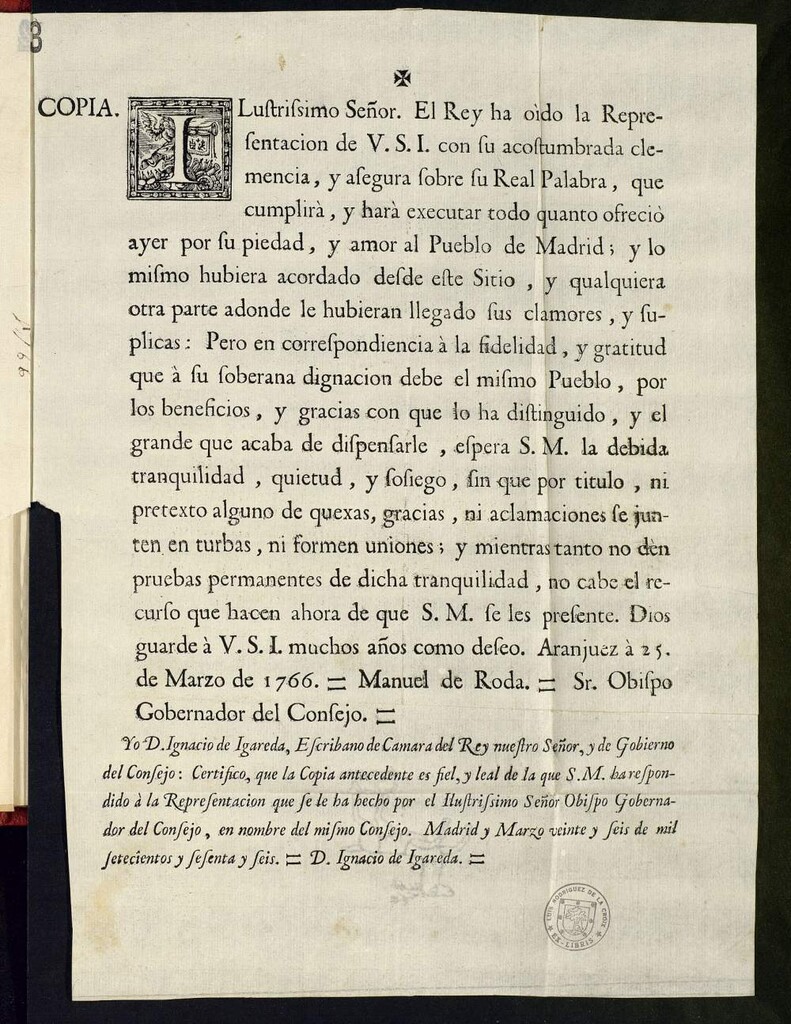 8
✠
COPIA. ILuſtriſsimo Señor. El Rey ha oìdo la Repre-
ſentacion de V. S. I. con ſu acoſtumbrada cle-
mencia, y aſegura ſobre ſu Real Palabra, que
cumplirà, y harà executar todo quanto ofreciò
ayer por ſu piedad, y amor al Pueblo de Madrid; y lo
miſmo hubiera acordado deſde eſte Sitio, y qualquiera
otra parte adonde le hubieran llegado ſus clamores, y ſu-
plicas: Pero en correſpondiencia à la fidelidad, y gratitud
que à ſu ſoberana dignacion debe el miſmo Pueblo, por
los beneficios, y gracias con que lo ha diſtinguido, y el
grande que acaba de diſpenſarle, eſpera S. M. la debida
tranquilidad, quietud, y ſoſiego, ſin que por titulo, ni
pretexto alguno de quexas, gracias, ni aclamaciones ſe jun-
ten en turbas, ni formen uniones; y mientras tanto no dèn
pruebas permanentes de dicha tranquilidad, no cabe el re-
curſo que hacen ahora de que S. M. ſe les preſente. Dios
guarde à V. S. I. muchos años como deſeo. Aranjuez à 25.
de Marzo de 1766. = Manuel de Roda. = Sr. Obiſpo
Gobernador del Conſejo. =
Yo D. Ignacio de Igareda, Eſcribano de Camara del Rey nueſtro Señor, y de Gobierno
del Conſejo: Certifico, que la Copia antecedente es fiel, y leal de la que S. M. ha reſpon-
dido à la Repreſentacion que ſe le ha hecho por el Iluſtriſsimo Señor Obiſpo Goberna-
dor del Conſejo, en nombre del miſmo Conſejo. Madrid y Marzo veinte y ſeis de mil
ſetecientos y ſeſenta y ſeis. = D. Ignacio de Igareda. =
LUIS RODRIGUEZ DE LA CROIX
EX-LIBRIS